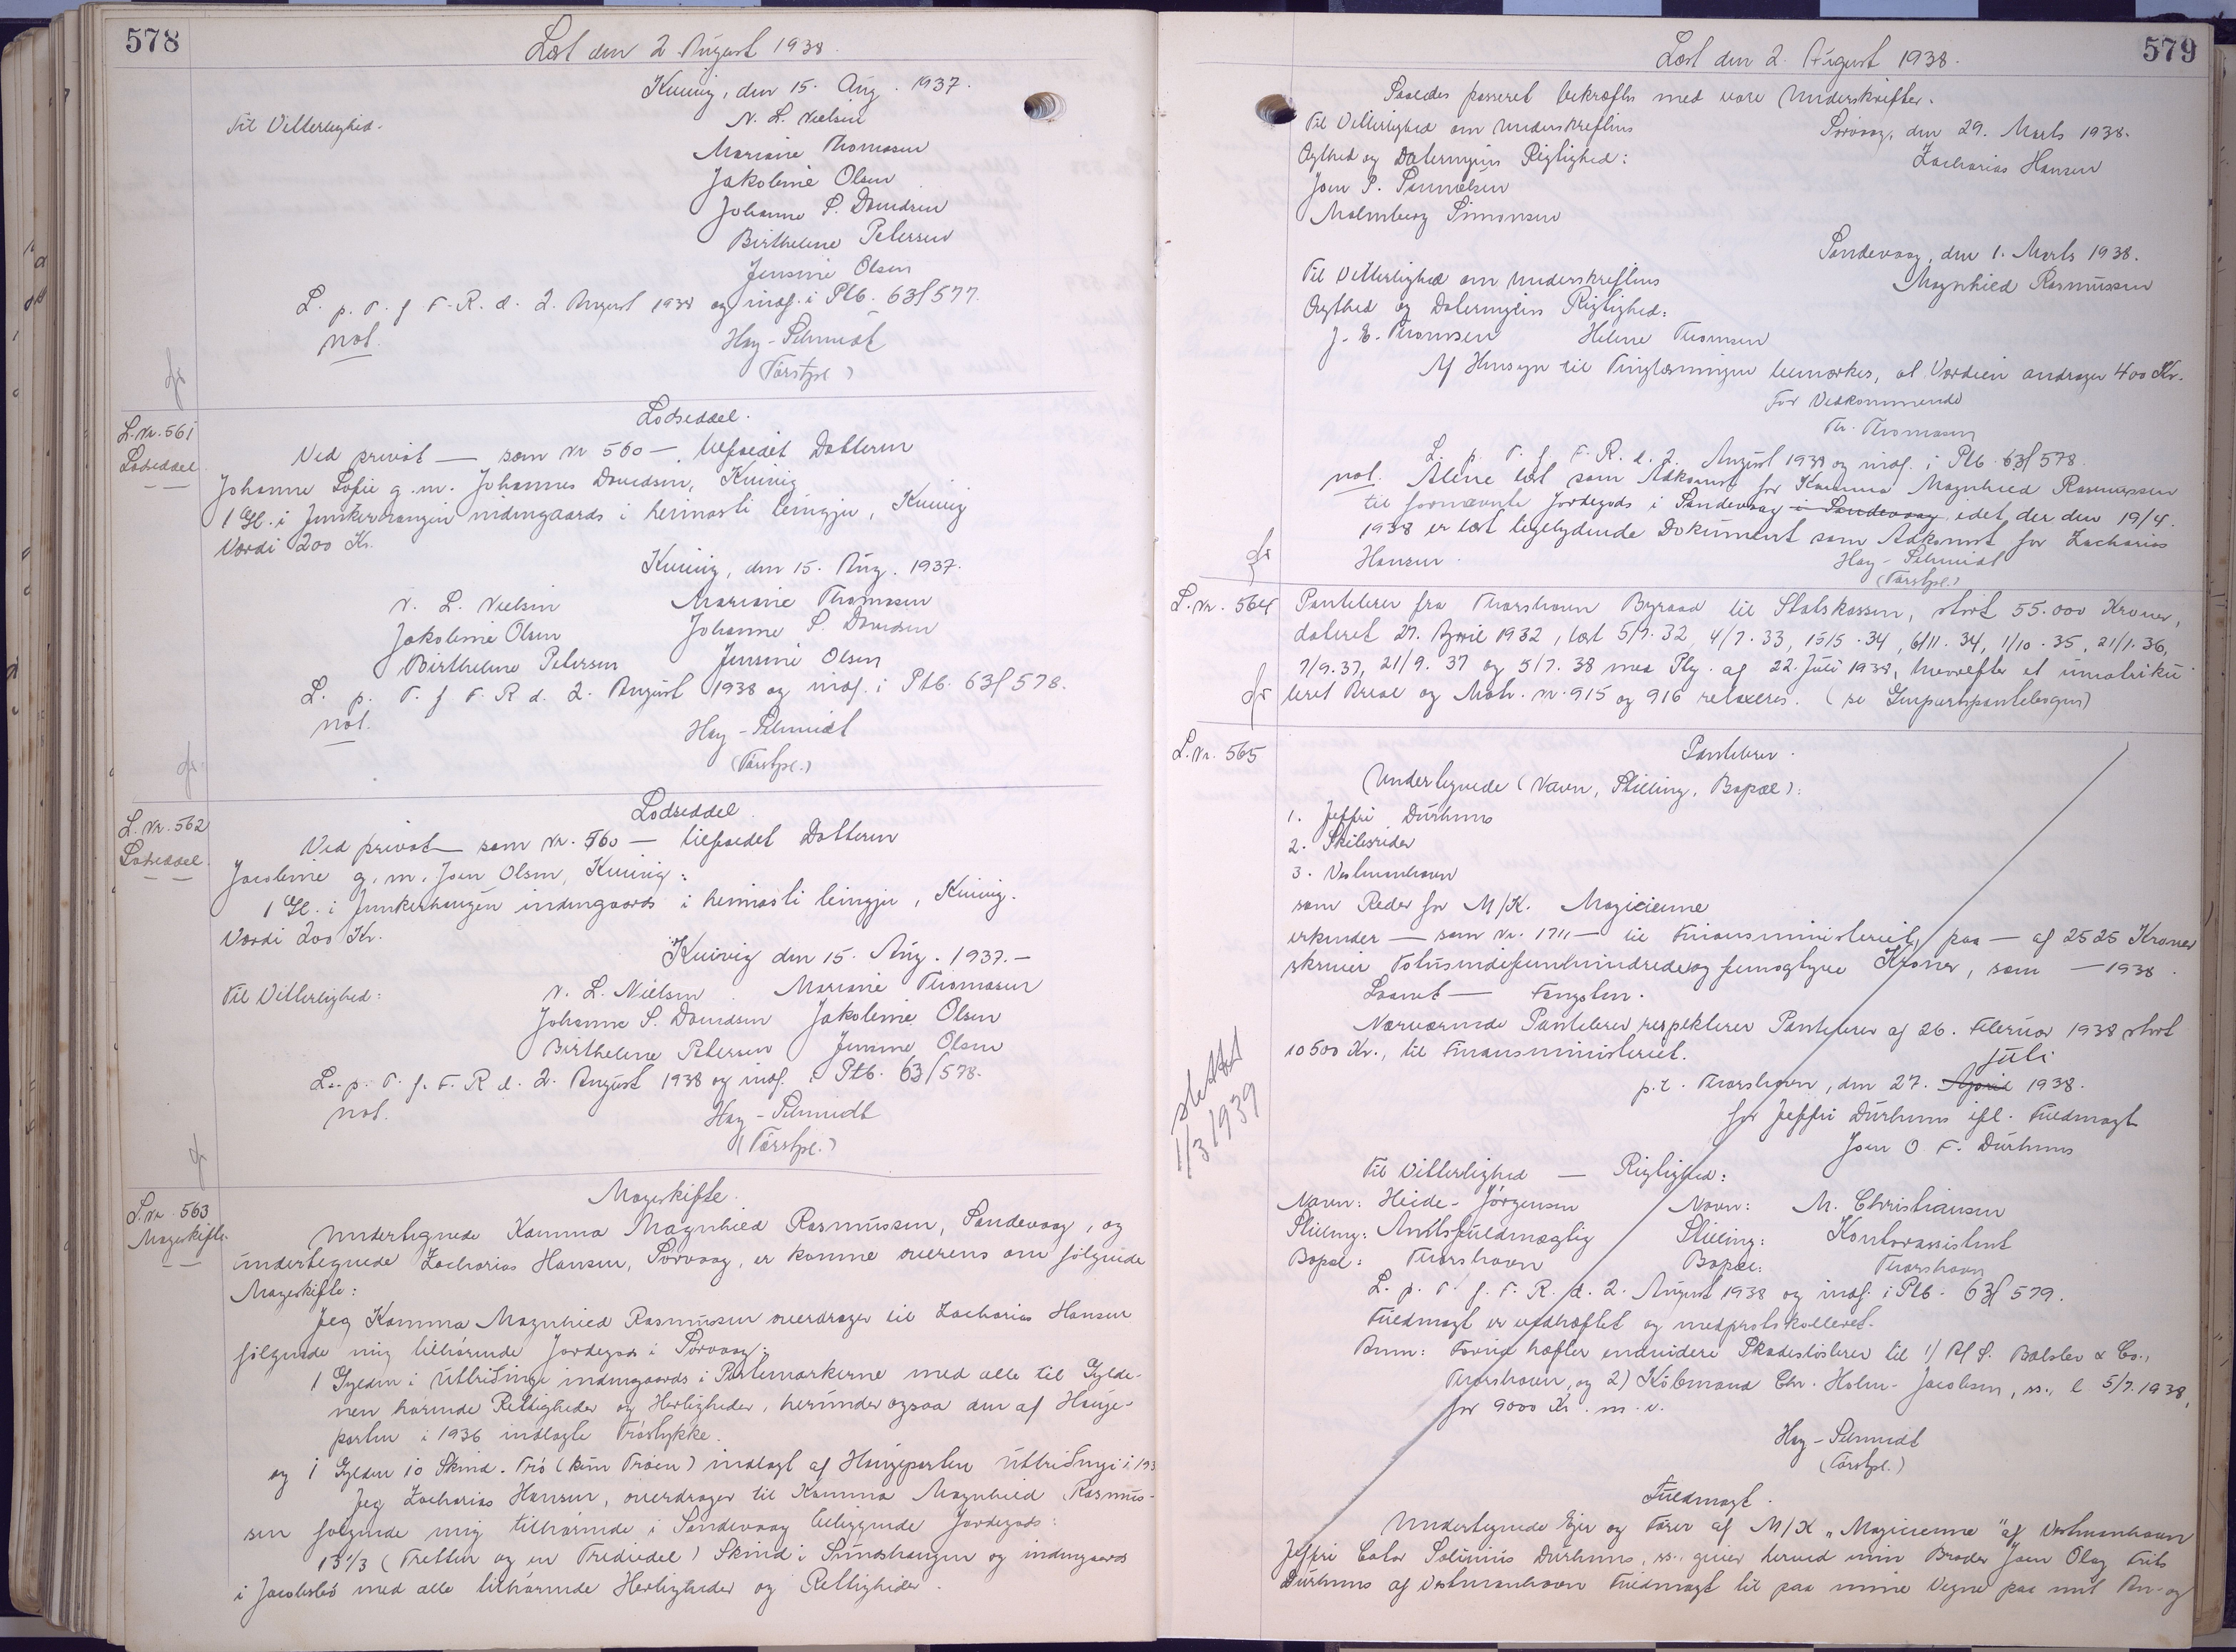 578
Læst den 2. August 1938.
Kvivig, den 15. Aug. 1937.
Til Vitterlighed.
N. L. Nielsen
Mariane Thomasen
Jakoline Olsen
Johanne S. Davidsen
Birthelene Petersen
Jensine Olsen
L. p. T. f. F. R. d. 2. August 1938 og indf. i Ptb. 63f 577.
not.
Hoy-Schmidt
(Forstpl.)
L. Nr. 561
Lodseddel.
Lodseddel
Ved privat — som Nr 560 — tilfaldet Datteren
Johanne Sofie g. m. Johannes Davidsen, Kvivig
1 Gl. i Junkerhaugen indengaards i heimasti leingju, Kvivig
Værdi 200 Kr.
Kvivig, den 15. Aug. 1937.
N. L. Nielsen
Mariane Thomasen
Jakoline Olsen
Johanne S. Davidsen
Birthelene Petersen
Jensine Olsen
L. p. T. f. F. R d. 2. August 1938 og indf. i Ptb. 63f 578.
not.
Hoy-Schmidt
(Forstpl.)
L. Nr. 562
Lodseddel.
Lodseddel
Ved privat — som Nr. 560 — tilfaldet Datteren
Jacoline g. m. Joen Olsen, Kvivig:
1 Gl. i Junkerhaugen indengaards i heimasti leingju, Kvivig.
Værdi 200 Kr.
Kvivig den 15. Aug. 1937.—
Til Vitterlighed:
N. L. Nielsen. Mariane Thomasen
Johanne S. Davidsen Jakoline Olsen
Birthelene Petersen Jensine Olsen
L. p. T. f. F. R d. 2. August 1938 og indf. i Ptb. 63/578.
not.
Hoy-Schmidt
(Forstpl.)
L. Nr. 563
Mageskifte.
Mageskifte.
Undertegnede Kamma Magnhild Rasmussen, Sandevaag, og
undertegnede Zacharias Hansen, Sørvaag, er komne overens om følgende
Mageskifte:
Jeg Kamma Magnhild Rasmussen overdrager til Zacharias Hansen
følgende mig tilhørende Jordegods i Sørvaag:
1 Gylden i Utbiðingi indengaards i Partemarkerne med alle til Gylde-
nen hørende Rettigheder og Herligheder, herunder ogsaa den af Hauge-
parten i 1936 indlagte Tróstykke.
og 1 Gylden 10 Skind. Tró (kun Tróen) indlagt af Haugeparten Utbiðingi i 193
Jeg Zacharias Hansen, overdrager til Kamma Magnhild Rasmus-
sen følgende mig tilhørende i Sandevaag beliggende Jordegods:
13 1/3 (Tretten og en Trediedel) Skind i Sundshaugen og indengaards
i Jacobsbø med alle tilhørende Herligheder og Rettigheder.
579
Læst den 2. August 1938.
Saaledes passeret bekræftes med vore Underskrifter.
Til Vitterlighed om Underskriftens
Sørvaag, den 29. Marts 1938.
Ægthed og Dateringens Rigtighed:
Zacharias Hansen
Joen P. Samuelsen
Malmberg Simonsen
Sandevaag, den 1. Marts 1938.
Til Vitterlighed om Underskriftens
Magnhild Rasmussen
Ægthed og Dateringens Rigtighed:
J. E. Thomsen Helene Thomsen
Af Hensyn til Tinglæsningen bemærkes, at Værdien andrager 400 Kr.
For Vedkommende
Th. Thomasen
L. p. T. f. F. R. d. 2. August 1938 og indf. i Ptb. 63f 578.
not. Alene læst som Adkomst for Kamma Magnhild Rasmussen
til fornævnte Jordegods i Sandevaag i Sandevaag, idet der den 19/4.
1938 er læst ligelydende Dokument som Adkomst for Zacharias
Hansen.
Hoy-Schmidt
(Forstpl.)
L. Nr. 564
Pantebrev fra Thorshavn Byraad til Statskassen, stort 55.000 Kroner,
dateret 27. April 1932, læst 5/7. 32, 4/7. 33, 15/5. 34, 6/11. 34, 1/10. 35, 21/1. 36,
7/9. 37, 21/9. 37 og 5/7. 38 med Ptg. af 22. Juli 1938, hvorefter et umatriku
leret Areal og Matr. nr. 915 og 916 relaxeres. (se Genpartspantebogen)
L. Nr. 565
Pantebrev.
Undertegnede (Navn, Stilling, Bopæl):
1. Jeffri Dürhuus
2. Skibsreder
3. Vestmanhavn
som Reder for M/K. Magicienne
erkender — som Nr. 1711 — til Finansministeriet, paa — af 2525 Kroner
skriver Totusindefemhundredeogfemogtyve Kroner, som — 1938.
Laanet — Fangsten.
Nærværende Pantebrev respekterer Pantebrev af 26. Februar 1938 stort
10500 Kr., til Finansministeriet.
Juli
p. t. Thorshavn, den 27. April 1938.
for Jeffri Dürhuus ifl. Fuldmagt
Joen O. F. Dürhuus
slettet
1/3 1939
Til Vitterlighed — Rigtighed:
Navn: Heide-Jörgensen Navn: M. Christiansen
Stilling: Amtsfuldmægtig Stilling: Kontorassistent
Bopæl: Thorshavn Bopæl: Thorshavn
L. p. T. f. F. R. d. 2. August 1938 og indf. i Ptb. 63f 579.
Fuldmagt er vedhæftet og medprotokolleret.
Anm: Forud hæfter endvidere Skadesløsbrev til 1) A/S S. Balslev & Co.,
Thorshavn, og 2) Købmand Chr. Holm-Jacobsen, ss., l. 5/7. 1938,
for 9000 Kr. m. v.
Hoy-Schmidt
(Forstpl.)
Fuldmagt.
Undertegnede Ejer og Fører af M/K „Magicienne“ af Vestmanhavn
Jeffri Cator Solinus Dürhuus, ss., giver herved min Broder Joen Olaf Frits
Dürhuus af Vestmanhavn Fuldmagt til paa mine Vegne paa mit An- og